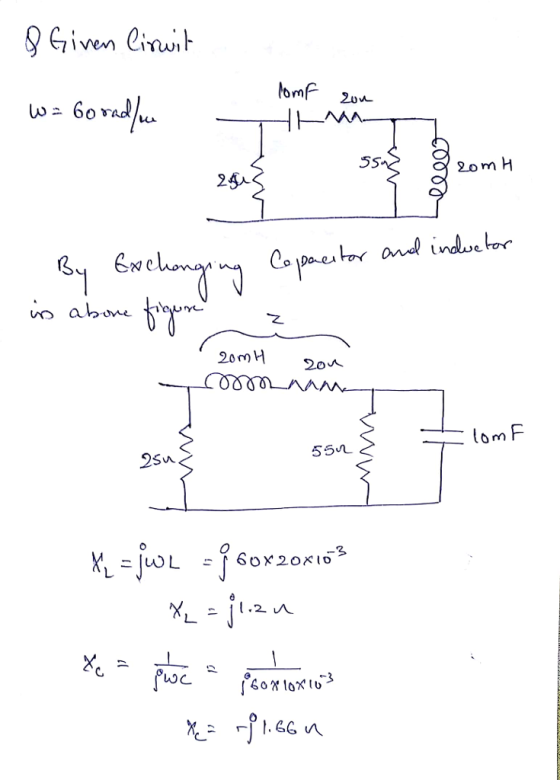 Q Given Circuit
ω = 60 rad/sec
10mF 20Ω
25Ω 55Ω 20mH
By Exchanging Capacitor and inductor
in above figure
Z
20mH 20Ω
25Ω 55Ω 10mF
X_L = jωL = j60×20×10⁻³
X_L = j1.2Ω
X_C = 1/jωC = 1/j60×10×10⁻³
X_C = -j1.66Ω